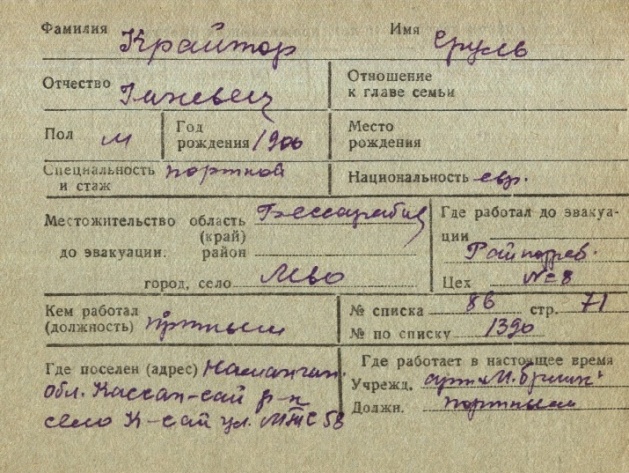 Фамилия Крайтор Имя Сруль
Отчество
Отношение к главе семьи
Пол м
Год рождения 1906
Место рождения
Специальность и стаж портной
Национальность евр.
Местожительство до эвакуации: область (край) Бессарабия
район
город, село
Где работал до эвакуации Райпотреб.
Цех № 8
Кем работал (должность) портным
№ списка 86 стр. 71
№ по списку 1390
Где поселен (адрес) Наманган.
обл. Кассан-сай р-н
село К-сай ул. МТС 58
Где работает в настоящее время
Учрежд. арт.
Должн. портным